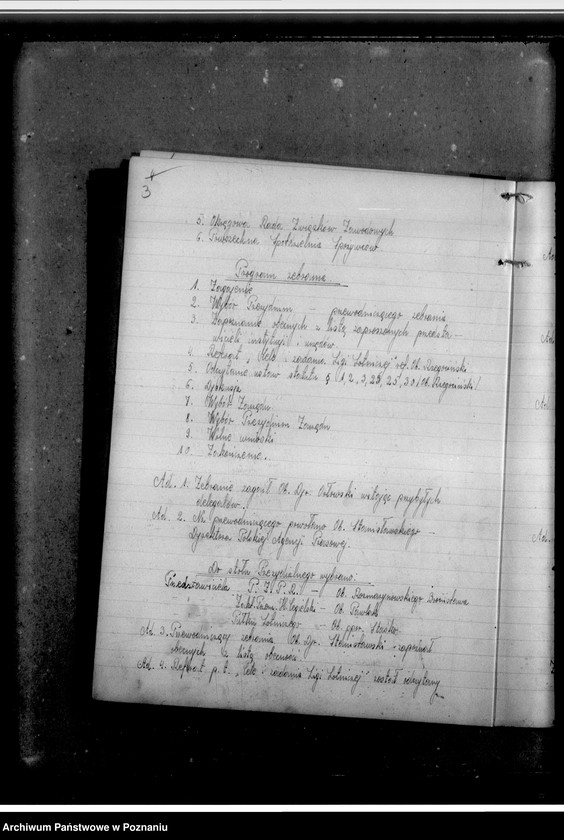 3
5. Okręgowa Rada Związków Zawodowych
6. Powszechna Spółdzielnia Spożywców
Program zebrania.
1. Zagajenie
2. Wybór Prezydium – przewodniczącego zebrania
3. Zapoznanie obecnych z listą zaproszonych przedsta-
wicieli instytucji i urzędów.
4. Referat „Cele i zadania Ligi Lotniczej" ref. Ob.
5. Odczytanie ustów statutu § 1, 2, 3, 23, 25, 30 /Ob.
6. Dyskusja
7. Wybór Zarządu
8. Wybór Prezydium Zarządu
9. Wolne wnioski
10. Zakończenie.
Ad. 1. Zebranie zagaił Ob. Dyr. Orłowski witając przybyłych
delegatów.
Ad. 2. Na przewodniczącego powołano Ob. Stanisławskiego –
Dyrektora Polskiej Agencji Prasowej.
Do stołu Prezydialnego wybrano:
Przedstawiciela P. Z. P. R. – Ob. Rozmarynowskiego Bronisława
Zakł. Przem. H. Cegielski – Ob. Pawlak
Pułku Lotniczego – Ob. ppor.
Ad. 3. Przewodniczący zebrania Ob. Dyr. Stanisławski zapoznał
obecnych z listą obecności
Ad. 4. Referat p. t. „Cele i zadania Ligi Lotniczej" został odczytany
Archiwum Państwowe w Poznaniu